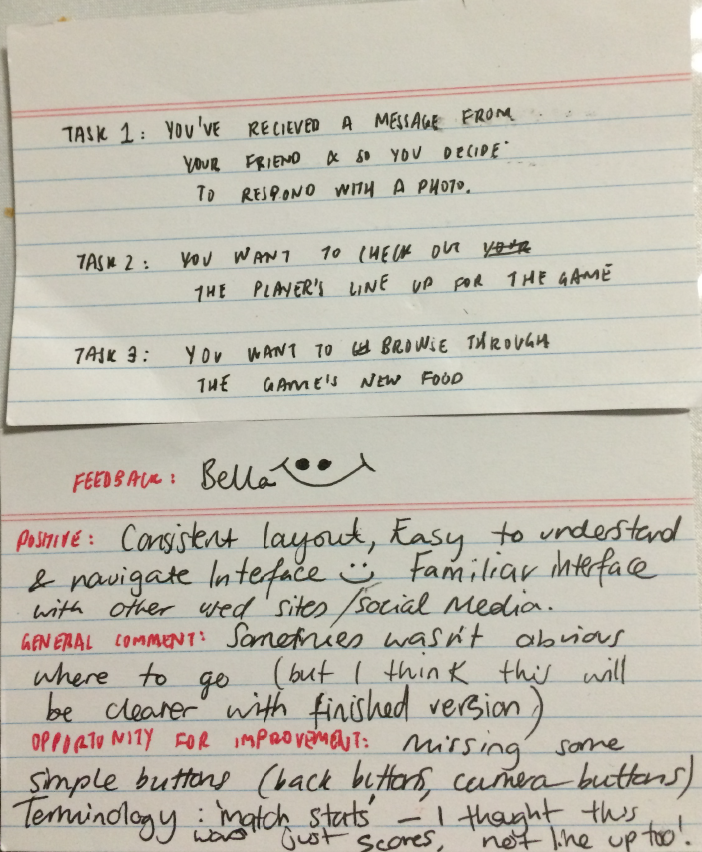 TASK 1: YOU'VE RECIEVED A MESSAGE FROM
YOUR FRIEND & SO YOU DECIDE
TO RESPOND WITH A PHOTO.
TASK 2: YOU WANT TO CHECK OUT YOUR
THE PLAYER'S LINE UP FOR THE GAME
TASK 3: YOU WANT TO BROWSE THROUGH
THE GAME'S NEW FOOD
FEEDBACK: Bella
POSITIVE: Consistent layout, Easy to understand
& navigate Interface Familiar interface
with other used sites/social Media.
GENERAL COMMENT: Sometimes wasn't obvious
where to go (but I think this will
be clearer with finished version)
OPPORTUNITY FOR IMPROVEMENT: Missing some
simple buttons (back buttons, camera buttons)
Terminology: 'match stats' - I thought this
was just scores, not line up too!